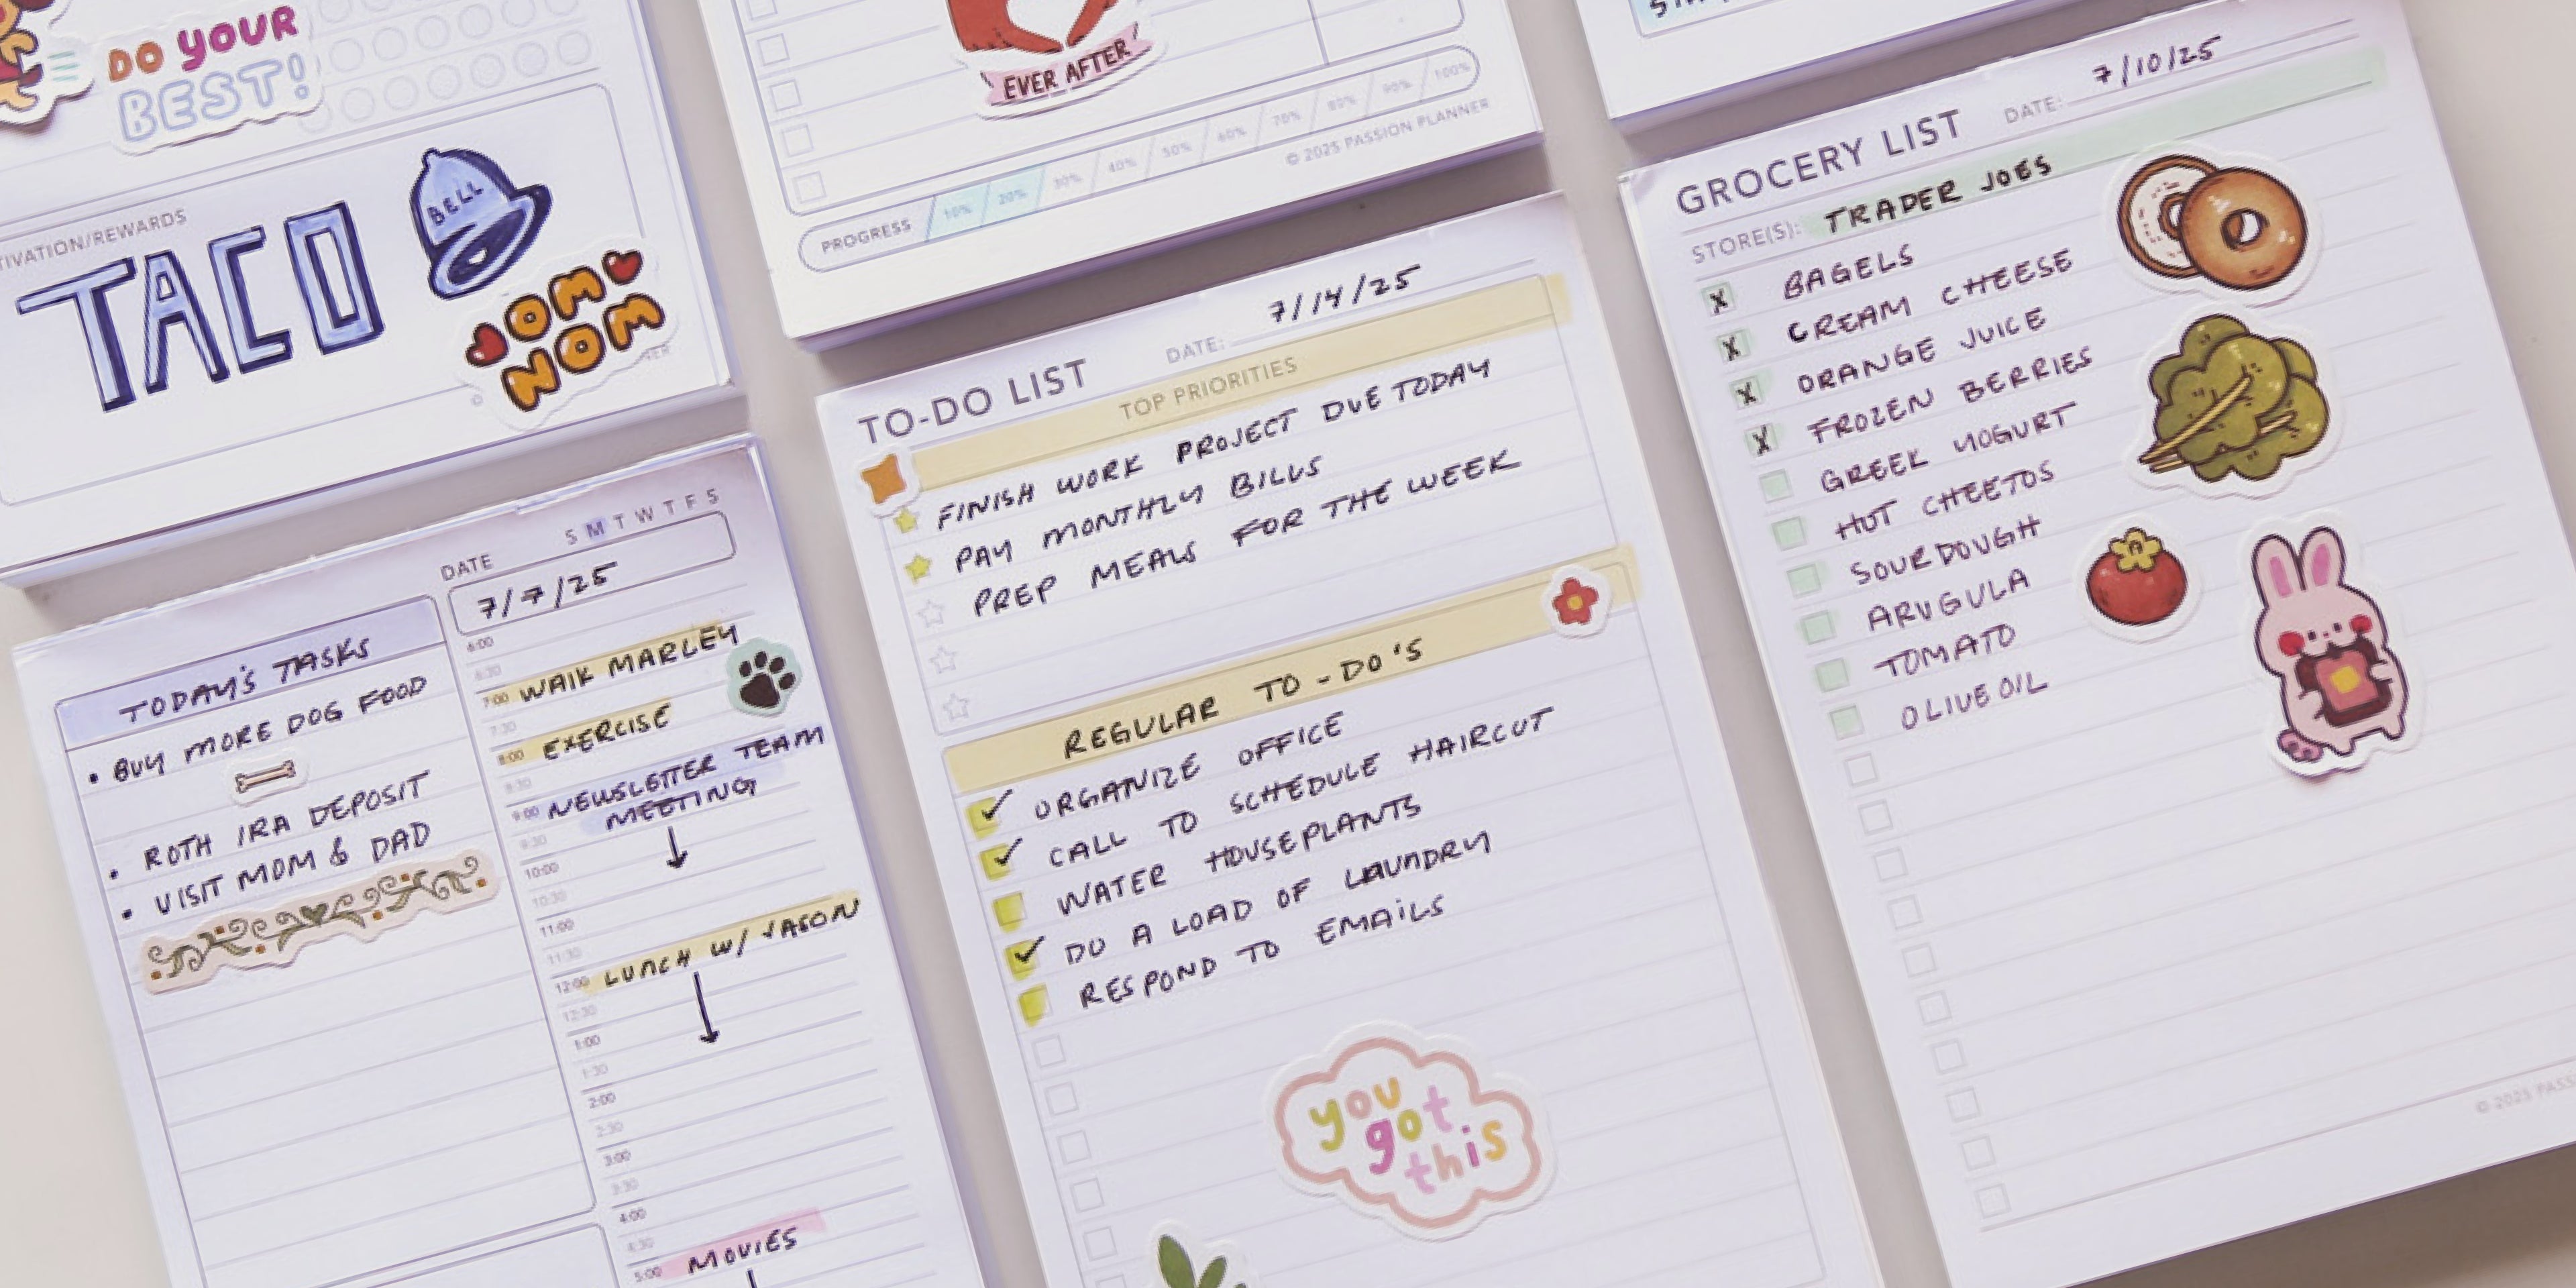 DO YOUR
BEST!
TIVATION/REWARDS
TACO
BELL
OM
NOM
EVER AFTER
PROGRESS 10% 20% 30% 40% 50% 60% 70% 80% 90% 100%
© 2025 PASSION PLANNER
DATE
S M T W T F S
7/7/25
TODAY'S TASKS
• BUY MORE DOG FOOD
• ROTH IRA DEPOSIT
• VISIT MOM & DAD
6:00
6:30
7:00 WALK MARLEY
7:30
8:00 EXERCISE
8:30
9:00 NEWSLETTER TEAM
MEETING
9:30
10:00
10:30
11:00
11:30
12:00 LUNCH W/ JASON
12:30
1:00
1:30
2:00
2:30
3:00
3:30
4:00
4:30
5:00 MOVIES
TO-DO LIST
DATE: 7/14/25
TOP PRIORITIES
FINISH WORK PROJECT DUE TODAY
PAY MONTHLY BILLS
PREP MEALS FOR THE WEEK
REGULAR TO-DO'S
ORGANIZE OFFICE
CALL TO SCHEDULE HAIRCUT
WATER HOUSEPLANTS
DO A LOAD OF LAUNDRY
RESPOND TO EMAILS
you
got
this
GROCERY LIST
DATE: 7/10/25
STORE(S): TRADER JOES
X BAGELS
X CREAM CHEESE
X ORANGE JUICE
X FROZEN BERRIES
GREEK YOGURT
HOT CHEETOS
SOURDOUGH
ARUGULA
TOMATO
OLIVE OIL
© 2025 PASS